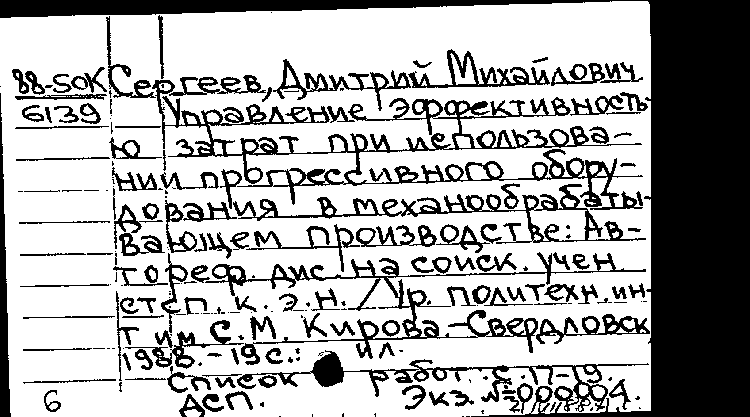 88-SOK Сергеев, Дмитрий Михайлович
6139 Управление эффективность-
ю затрат при использова-
нии прогрессивного обору-
дования в механообрабаты-
вающем производстве: Ав-
тореф. дис. на соиск. учен
степ. к. э. н. / Ур. политехн. ин-
т им. С. М. Кирова.-Свердловск,
1988.-19 с.: ил.
Список работ: с. 17-19.
6 ДСП. Экз. №000004.